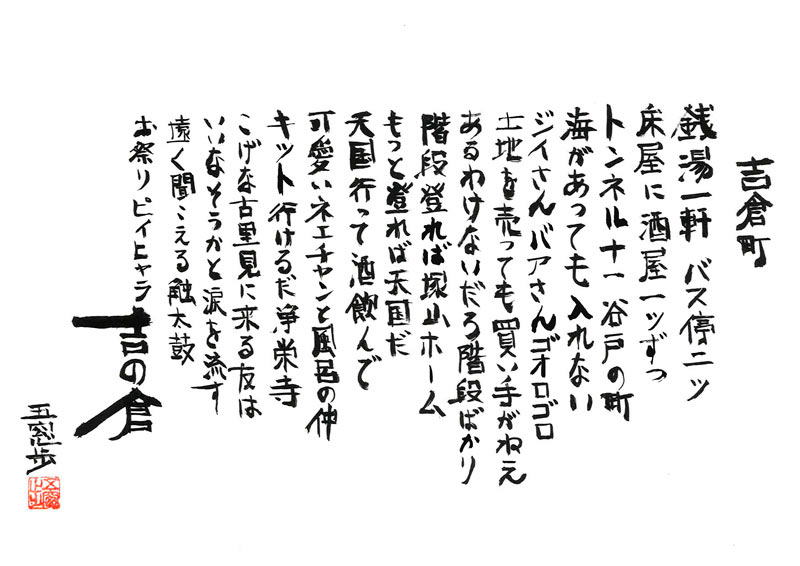 吉倉町
銭湯一軒 バス停二ツ
床屋に酒屋一ツずつ
トンネル十一谷戸の町
海があっても入れない
ジイさんバアさんゴオロゴロ
土地を売っても買い手がねえ
あるわけないだろ階段ばかり
階段登れば塚山ホーム
もっと登れば天国だ
天国行って酒飲んで
可愛いネエチャンと風呂の仲
キット行けるだ浄栄寺
こげな古里見に来る友は
いいなそうかと涙を流す
遠く聞こえる触太鼓
お祭りピイヒャラ 吉の倉
五窓歩